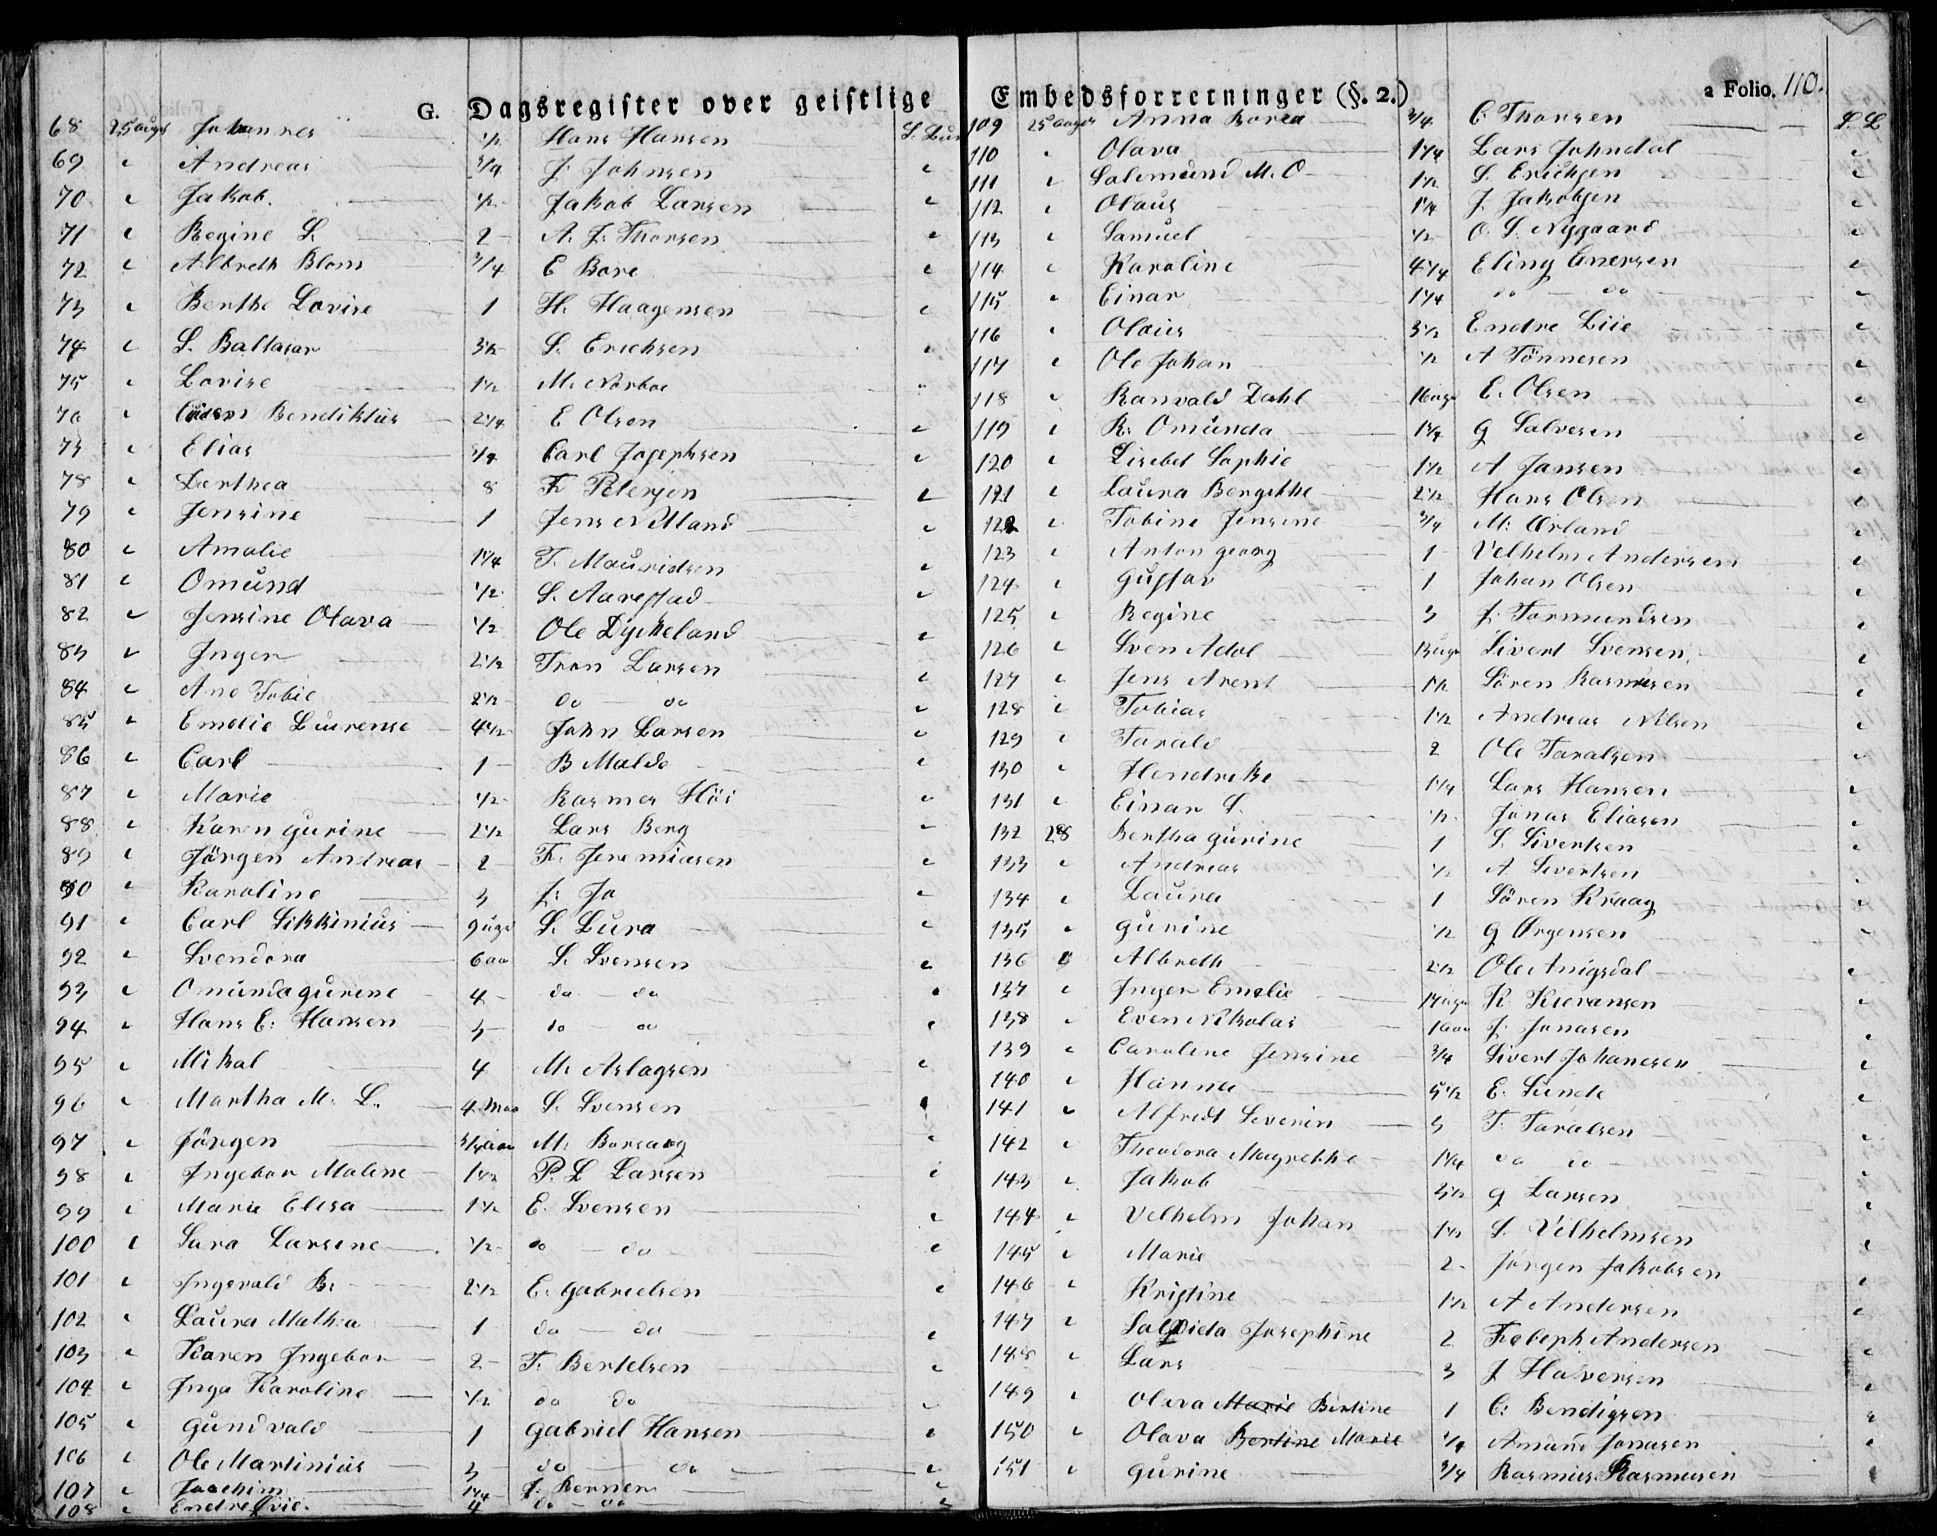 G. Dagsregister over geistlige
68 25 aug Johannes 1/2 Hans Hansen
69 " Andreas 3/4 J. Johnsen "
70 " Jakob. 1/2 Jakob Larsen "
71 " Regine S. 2 A. J. Thorsen "
72 " Albreth Blom 3/4 E Bore "
73 " Berthe Lovise 1 H. Haagensen "
74 " S. Baltasar 3 1/2 S. Erichsen "
75 " Lovise 1 1/2 M. Norboe "
76 " Bendiktus 2 1/4 E Olsen "
77 " Elias 3/4 Carl Josephsen "
78 " Derthea 8 Petersen "
79 " Jensine 1 Jens "
80 " Amalie 1 1/4 T. Mauridsen "
81 " Omund 1/2 S. Aarestad "
82 " Jensine Olava 1/2 Ole Dyskeland "
83 " Inger 2 1/2 Tron Larsen "
84 " Ane Tobie 2 1/2 do — do "
85 " Emelie Laurense 4 1/2 John Larsen "
86 " Carl 1 B Malde "
87 " Marie 1/2 Rasmes Höi "
88 " Karen gurine 2 1/2 Lars Berg "
89 " Jörgen Andreas 2 Jeremiasen "
90 " Karoline 3 J: Jo "
91 " Carl Sikkinius 9 uger S. Lura "
92 " Svendora 6 aa S. Svensen "
93 " Omunda gurine 4 do — do "
94 " Hans E: Hansen 3 do — do "
95 " Mikal 4 M. Aslagsen "
96 " Martha M. L. 4 Maa S. Svensen "
97 " Jörgen M. "
98 " Ingebor Malene 1 1/2 P. L Larsen "
99 " Marie Elisa 1 1/2 E. Svensen "
100 " Sara Larsine 1/2 do — do "
101 " Ingevald B: 2 1/2 E. Gabrielsen "
102 " Laura Mathea 1 do — do "
103 " Karen Ingebor 2 T. Bertelsen "
104 " Inga Karoline 1/2 do do "
105 " Gundvald 1 Gabriel Hansen "
106 " Ole Martinius 3 do — do "
107 " Joachim 1 1/4 J. Berner "
108 " Endre 4 do — do "
Embedsforretninger (§. 2.) a Folio. 110.
109 25 aug Anna Borea 3/4 C Thorsen S. L
110 " Olava 1 1/4 Lars Johndal "
111 " Salemund M. O 1 1/2 S. Erichsen "
112 " Olaus 1 1/4 J. Jakobsen "
113 " Samuel 1/2 O. S. Nygaard "
114 " Karoline 4 1/4 Eling Enersen "
115 " Einar 1 1/4 do — do "
116 " Olaus 3 1/2 Endre Liie "
117 " Ole Johan 1/2 A Tönnesen "
118 " Ranvald Dahl 16 uger E. Olsen "
119 " R: Omunda 1 1/4 G Salvesen "
120 " Lisebet Sophie 1 1/2 A Jansen "
121 " Laura Bergithe 2 1/2 Hans Olsen "
122 " Tobine Jensine 3/4 M: Ørland "
123 " Anton georg 1 Velhelm Andersen "
124 " Gustav 1 Johan Olsen "
125 " Regine 3 J. Tormundsen "
126 " Sven Adol Sivert Svensen. "
127 " Jens Arent 1 1/2 Sören Rasmusen "
128 " Tobias 1 1/2 Andreas Nilsen "
129 " Tarald 2 Ole Taralsen "
130 " Hendreke 1 1/4 Lars Hansen "
131 " Einar S. 1/2 Jonas Eliasen "
132 28 Bertha gurine 1 S. Sivertsen "
133 " Andreas 1/2 A. Sivertsen "
134 " Laura 1 Sören Kraag "
135 " gurine 1/2 G Ørgensen "
136 " Albreth 2 1/2 Ole Anigsdal "
137 " Inger Emelie 17 uger K "
138 " Even Nikolai J. Jonasen "
139 " Caroline Jensine 3/4 Sivert Johanesen "
140 " Hanna 5 1/2 E. Sunde "
141 " Alfred Severin 3 T. Taralsen "
142 " Theodora Magrethe 1 1/4 do do "
143 " Jakob 3 1/2 G Larsen "
144 " Velhelm Johan 1 1/2 S. Velhelmsen "
145 " Marie 2 Jörgen Jakobsen "
146 " Kristine 1 1/2 A Andersen "
147 " Josephine 2 Andersen "
148 " Lars 3 J Halversen "
149 " Olava Marie Bertine 1 C: Bendigsen "
150 " Olava Bertine Marie Amund Jonasen "
151 " Gurine 3/4 Rasmus Rasmusen "